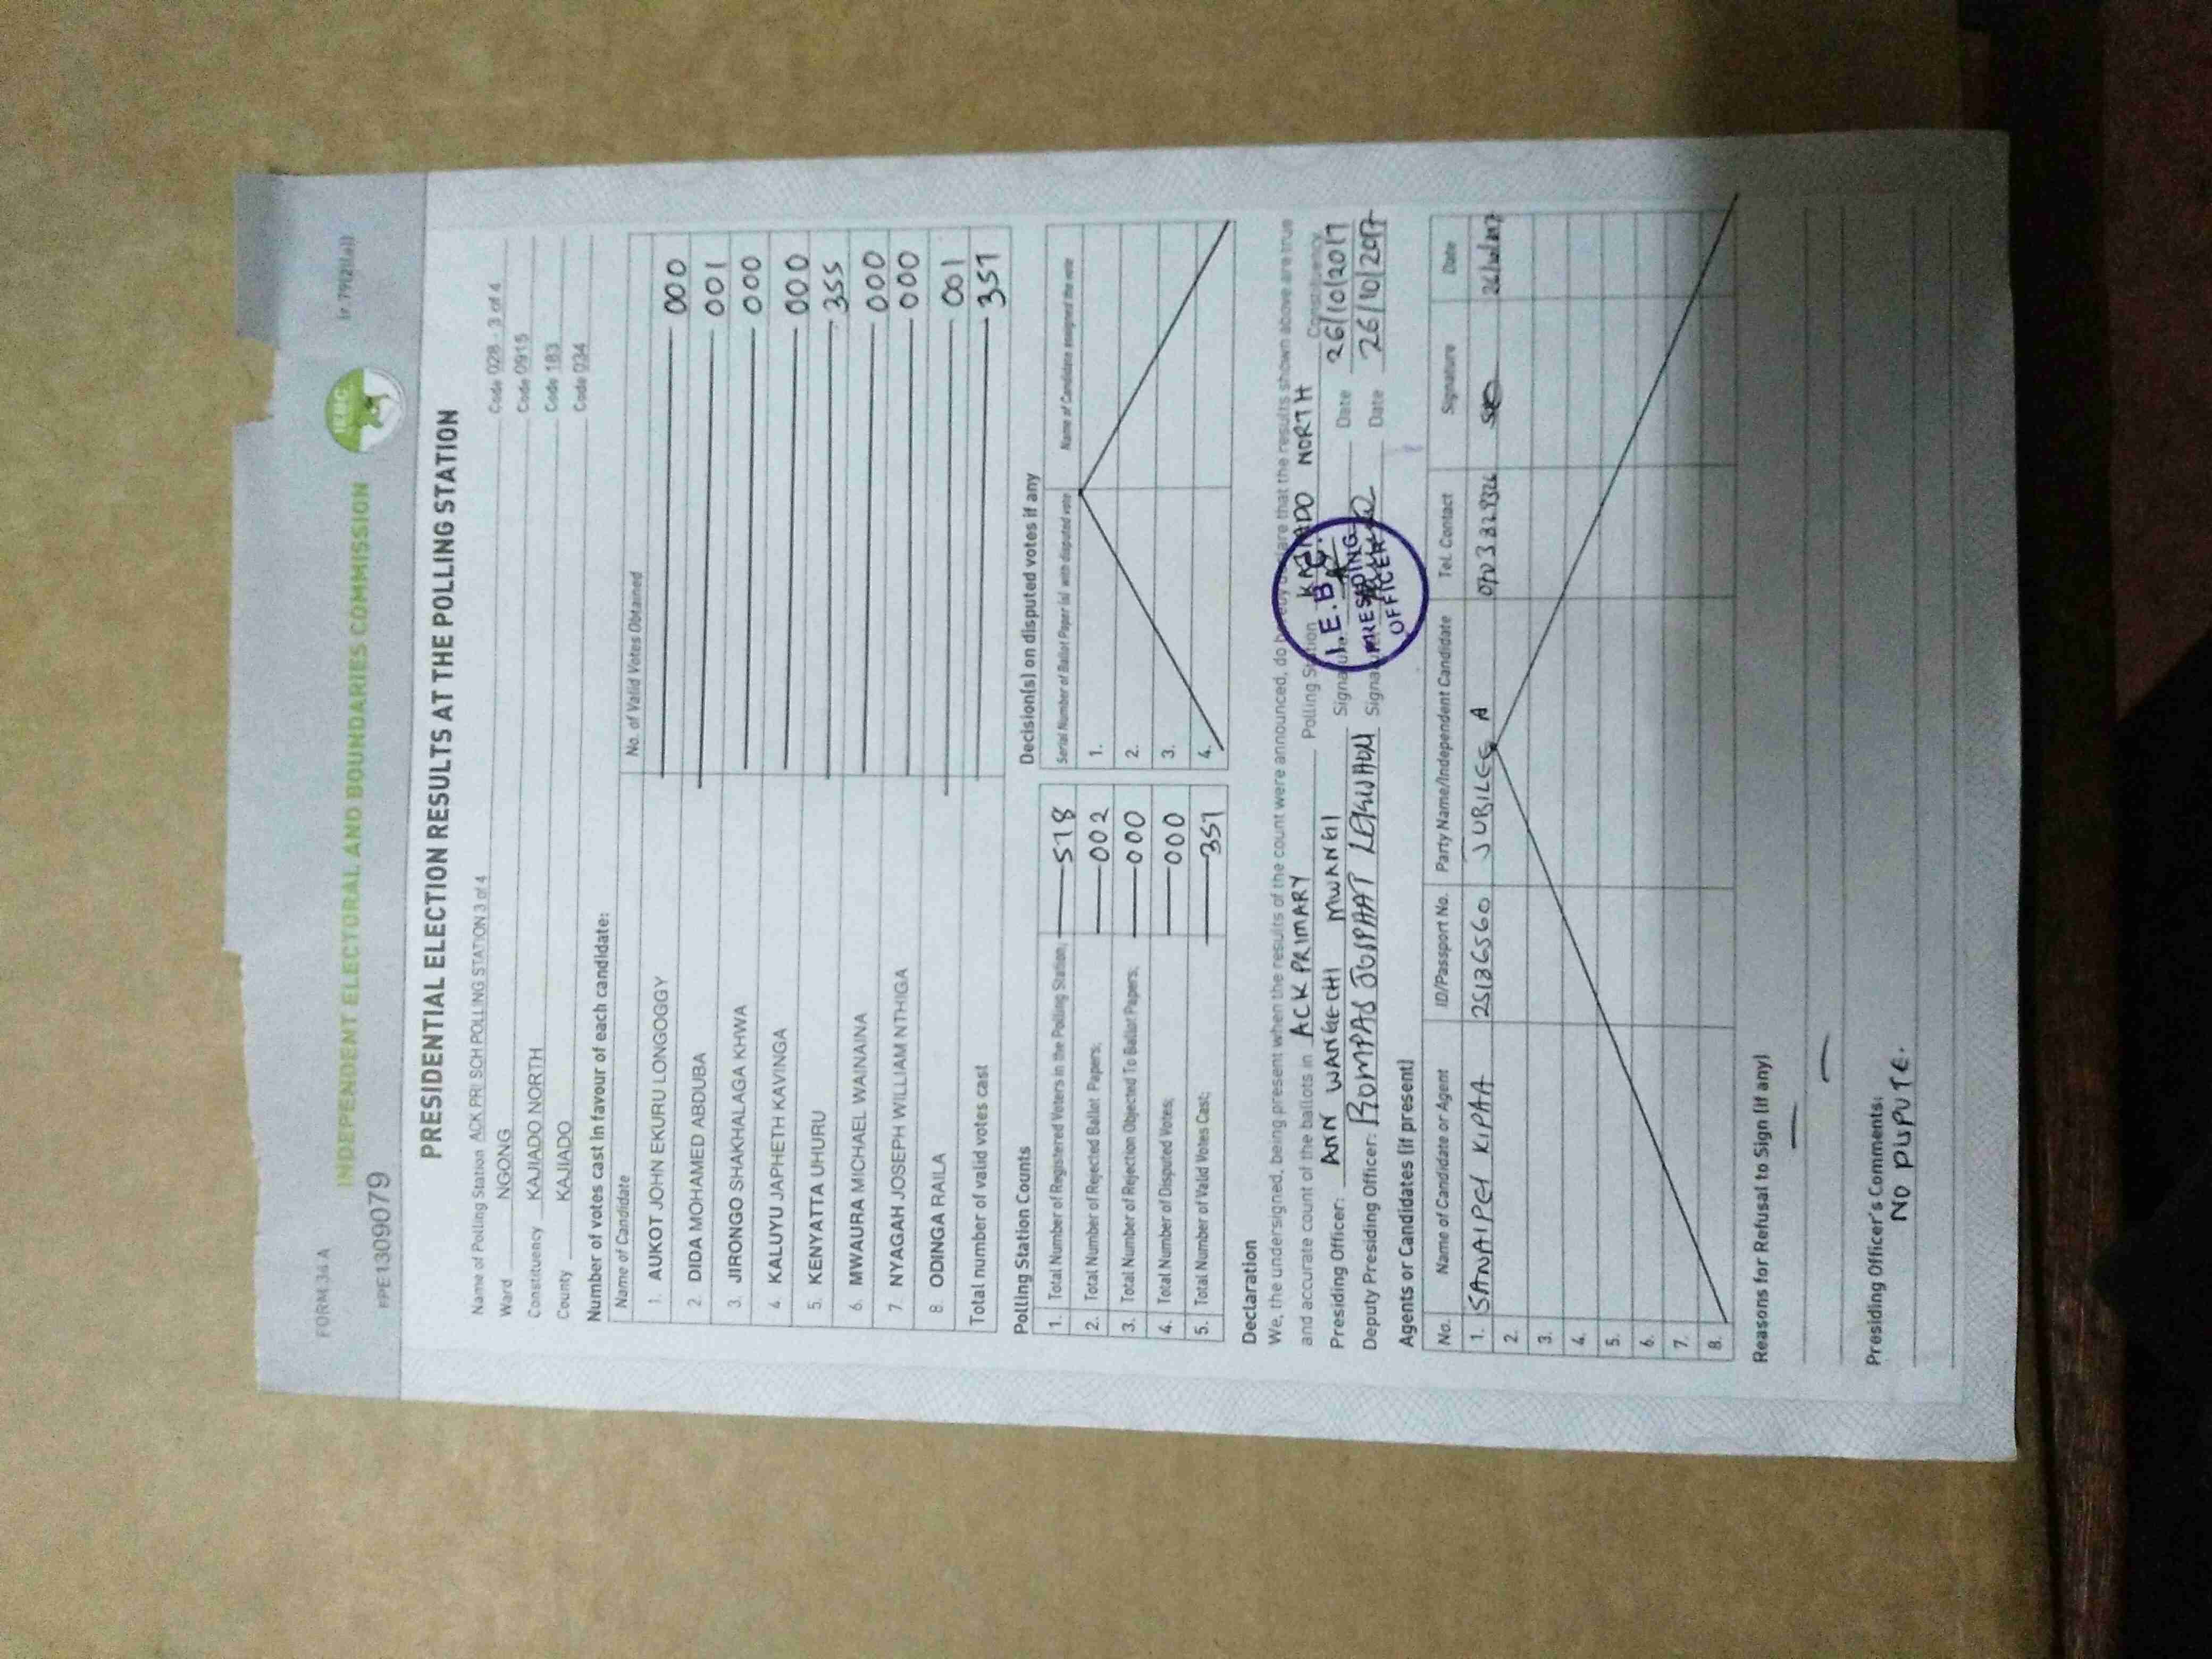 FORM 34 A
(r 79(2)(a))
INDEPENDENT ELECTORAL AND BOUNDARIES COMMISSION
IEBC
PRESIDENTIAL ELECTION RESULTS AT THE POLLING STATION
Name of Polling Station ACK PRI SCH POLLING STATION 3 of 4 Code 028 - 3 of 4
Ward NGONG Code 0915
Constituency KAJIADO NORTH Code 183
County KAJIADO Code 034
Number of votes cast in favour of each candidate:
Name of Candidate No. of Valid Votes Obtained
1. AUKOT JOHN EKURU LONGOGGY 000
2. DIDA MOHAMED ABDUBA 001
3. JIRONGO SHAKHALAGA KHWA 000
4. KALUYU JAPHETH KAVINGA 000
5. KENYATTA UHURU 355
6. MWAURA MICHAEL WAINAINA 000
7. NYAGAH JOSEPH WILLIAM NTHIGA 000
8. ODINGA RAILA 001
Total number of valid votes cast 357
Polling Station Counts
1. Total Number of Registered Voters in the Polling Station; 518
2. Total Number of Rejected Ballot Papers; 002
3. Total Number of Rejection Objected To Ballot Papers; 000
4. Total Number of Disputed Votes; 000
5. Total Number of Valid Votes Cast; 357
Decision(s) on disputed votes if any
Serial Number of Ballot Paper (s) with disputed vote Name of Candidate assigned the vote
1.
2.
3.
4.
Declaration
We, the undersigned, being present when the results of the count were announced, do hereby declare that the results shown above are true
and accurate count of the ballots in ACK PRIMARY Polling Station KAJIADO NORTH Constituency
Presiding Officer: ANN WANGECHI MWANGI Signature Date 26/10/2017
Deputy Presiding Officer: Signature Date 26/10/2017
I.E.B.C.
PRESIDING
OFFICER
Agents or Candidates (if present)
No. Name of Candidate or Agent ID/Passport No. Party Name/Independent Candidate Tel. Contact Signature Date
1. SANAIPEI KIPAA 25136560 JUBILEE A 26/10/2017
2.
3.
4.
5.
6.
7.
8.
Reasons for Refusal to Sign (if any)
Presiding Officer's Comments:
NO DISPUTE.